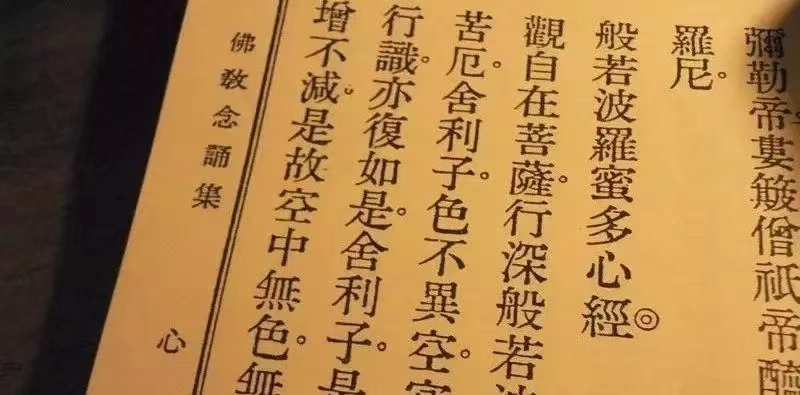 彌勒帝婁簸僧祇帝醯
羅尼。
般若波羅蜜多心經◎
觀自在菩薩。行深般若波
苦厄。舍利子。色不異空。空
行識。亦復如是。舍利子。是
增不減。是故空中無色。無
佛教念誦集
心